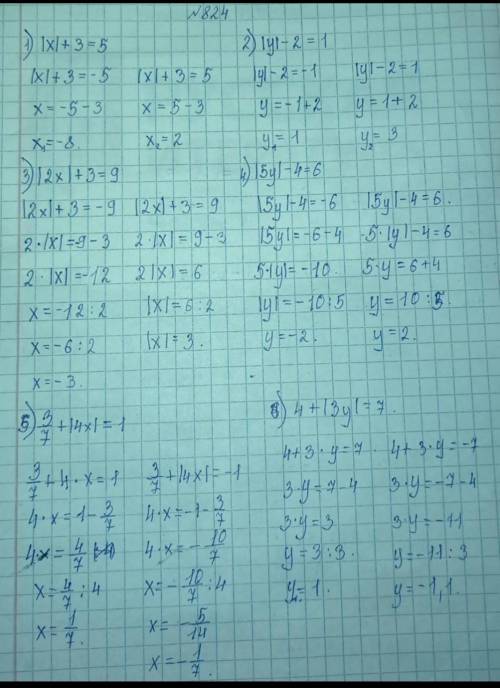 №824
1) |x|+3=5
|x|+3=-5 |x|+3=5
x=-5-3 x=5-3
x₁=-8. x₂=2
2) |y|-2=1
|y|-2=-1 |y|-2=1
y=-1+2 y=1+2
y₁=1 y₂=3
3) |2x|+3=9
|2x|+3=-9 |2x|+3=9
2·|x|=9-3 2·|x|=9-3
2·|x|=-12 2|x|=6
x=-12:2 |x|=6:2
x=-6:2 |x|=3.
x=-3.
4) |5y|-4=6
|5y|-4=-6 |5y|-4=6.
|5y|=-6-4 5·|y|-4=6
5·|y|=-10. 5·y=6+4
|y|=-10:5 y=10:5.
y=-2. y=2.
5) 3/7+|4x|=1
3/7+4·x=1 3/7+|4x|=-1
4·x=1-3/7 4·x=-1-3/7
4·x=4/7 4·x=-10/7
x=4/7:4 x=-10/7:4
x=1/7. x=-5/14
x=-1/7.
6) 4+|3y|=7.
4+3·y=7. 4+3·y=-7
3·y=7-4 3·y=-7-4
3·y=3 3·y=-11
y=3:3. y=-11:3
y=1. y=-1,1.